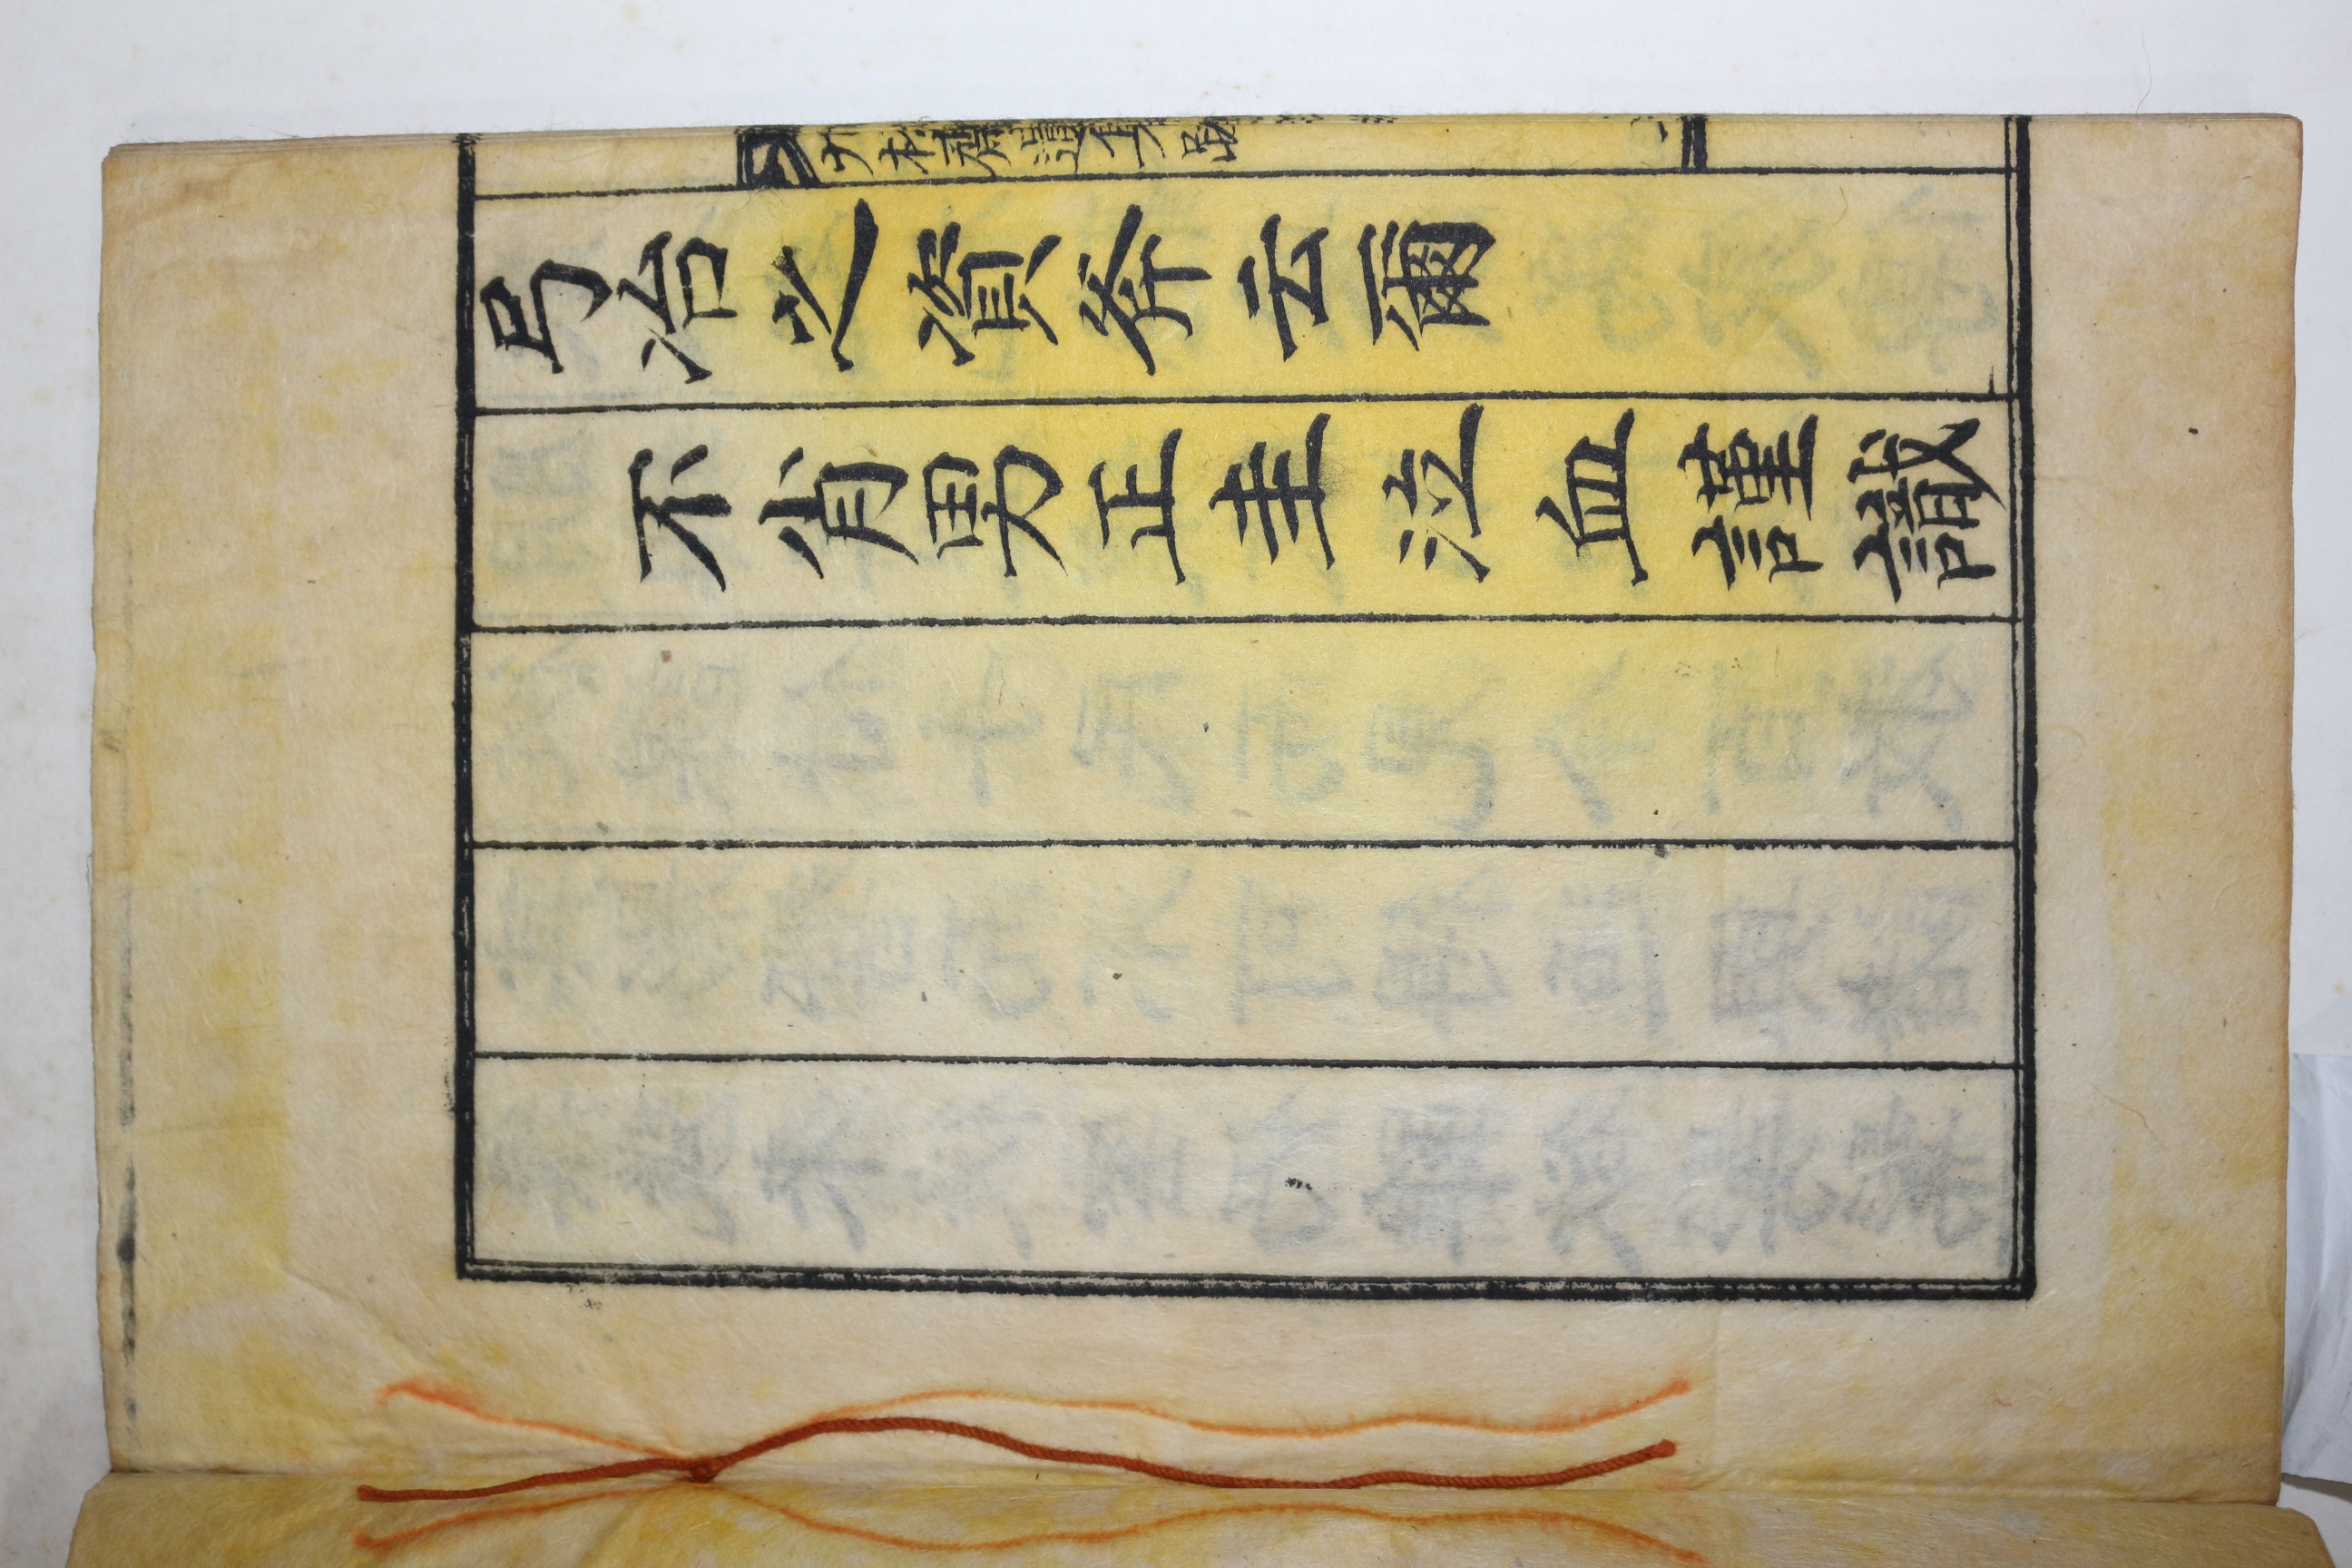 弓冶之資斧云爾
不肖男正圭泣血謹識
齋遺集跋